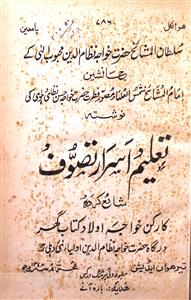 ھوالکل ۷۸۶ یا معین
سلطان المشائخ حضرت خواجہ نظام الدین محبوب الٰہی کے
جانشین
امام المشائخ شمس العلماء مصور فطرت حضرت خواجہ حسن نظامی دہلوی کی
نوشتہ
تعلیم اسرار تصوف
شائع کردہ
کارکن خواجہ اولاد کتاب گھر
درگاہ حضرت خواجہ نظام الدین اولیاء نئی دہلی
تیرھواں ایڈیشن